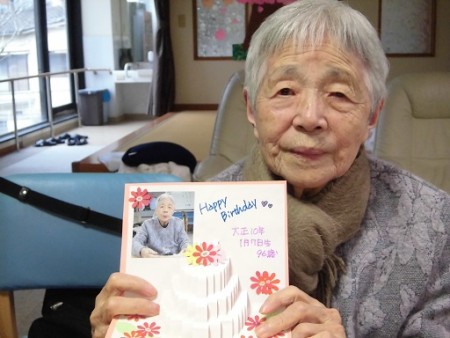 Happy
Birthday
大正10年
1月7日生
96歳